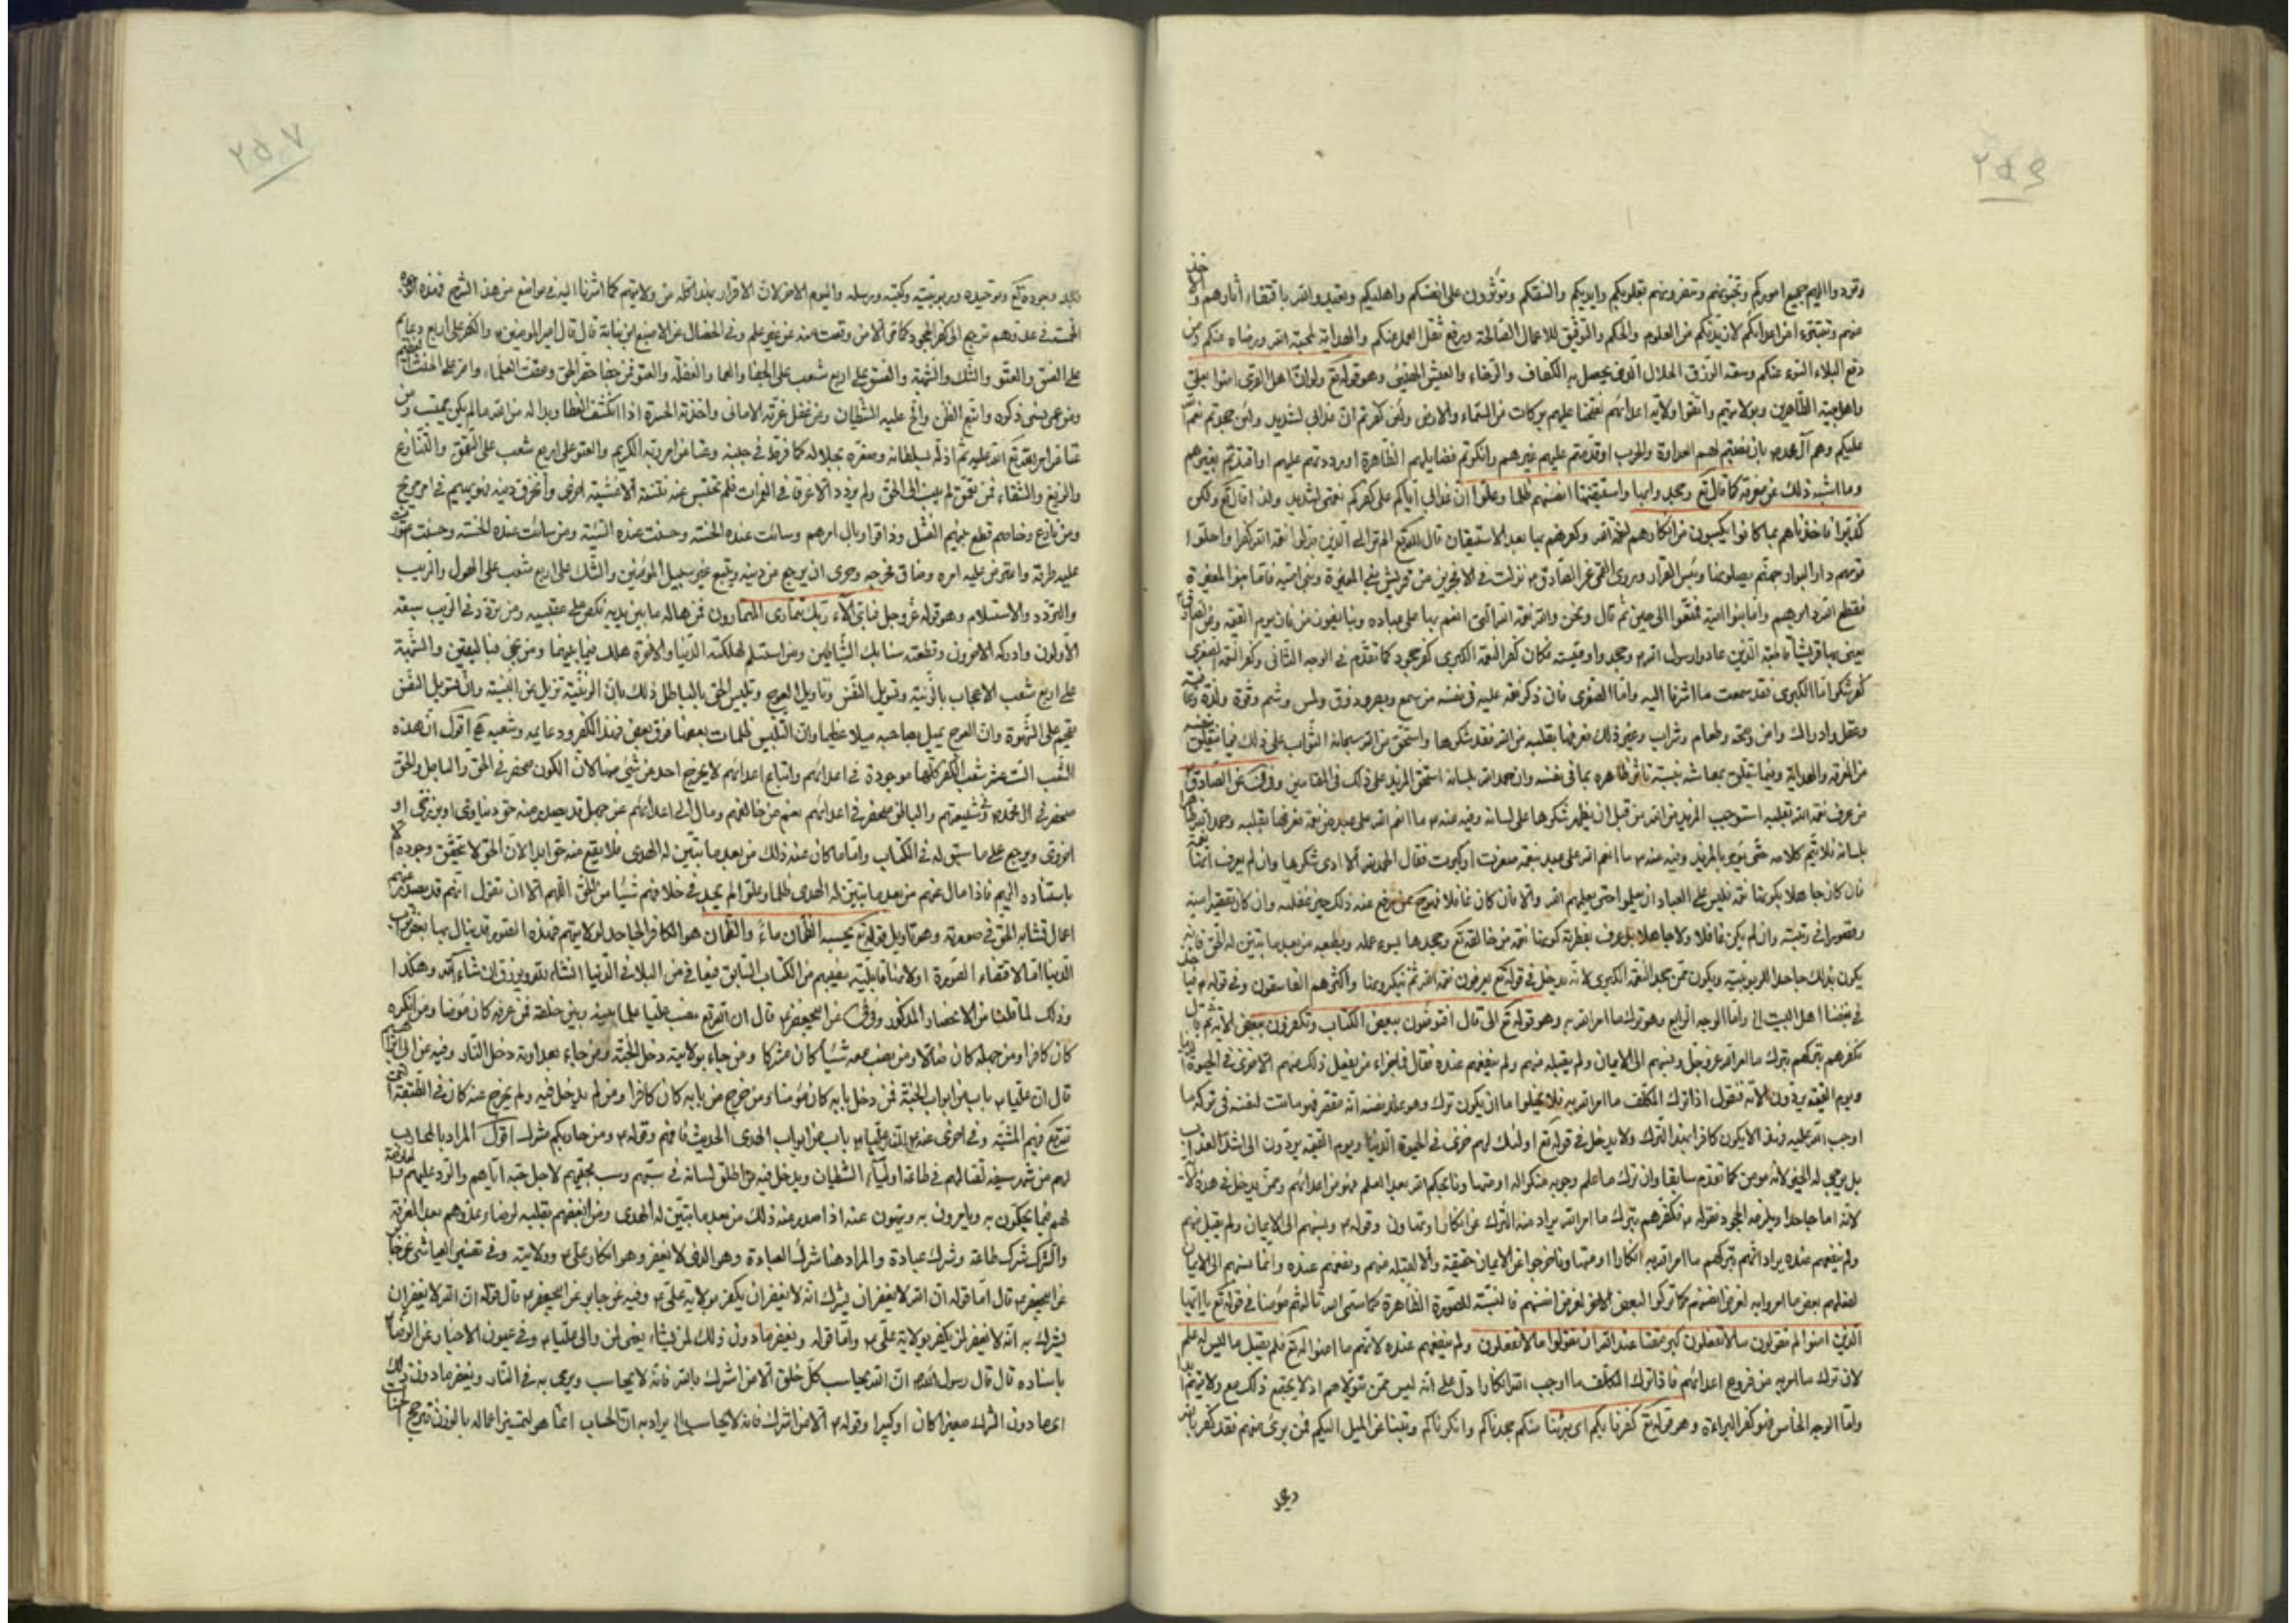 ٢٥٦
وتردوا اليهم جميع اموركم وتحبونهم وتنصرونهم بقلوبكم وايديكم والسنتكم وتؤثرون على انفسكم واهليكم باقتفاء آثارهم
منهم وتتبرءوا من اعدائكم لازيدنكم من العلوم والحكم والتوفيق للاعمال الصالحة ورفع ثقل العمل عنكم والهداية لمحبة الله ورضاه عنكم
دفع البلاء السوء عنكم وسعة الرزق الحلال الذى يحصل به الكفاف والرخاء والعيش وهو قوله تع ولو ان اهل القرى امنوا
واهل بيته الطاهرين وبولايتهم واتقوا ولاية اعدائهم لفتحنا عليهم بركات من السماء والارض ولئن كفرتم ان عذابى لشديد ولئن جحدتم
عليكم وهم آل محمد بان نصبتم لهم العداوة والحرب او قدمتم عليهم غيرهم وانكرتم فضايلهم الظاهرة او رددتم عليهم او اقتديتم بغيرهم
وما اشبه ذلك عن معرفة كما قال تع وجحدوا بها واستيقنتها انفسهم ظلما وعلوا ان عذابى اياكم على كفركم نعمتى لشديد ولذا قال تع ولكن
كذبوا فاخذناهم بما كانوا يكسبون من انكارهم لنعمة الله وكفرهم بها بعد الاستيقان قال الله تع الم تر الى الذين بدلوا نعمة الله كفرا واحلوا
قومهم دار البوار جهنم يصلونها وبئس القرار وروى القمى عن الصادق نزلت فى الافجرين من قريش بنى المغيرة وبنى امية فاما بنو المغيرة
فقطع الله دابرهم واما بنو امية فمتعوا الى حين ثم قال ونحن والله نعمة الله التى انعم بها على عباده وبنا يفوز من فاز يوم القيمة
يعنى بها قريشا قاطبة الذين عادوا رسول الله وجحدوا وصيته فكان كفر النعمة الكبرى كفر جحود كما تقدم فى الوجه الثانى وكفر النعمة الصغرى
كفر شكر اما الكبرى فقد سمعت ما اشرنا اليه واما الصغرى فان ذكر نعمة عليه فى نفسه من سمع وبصر وذوق ولمس وشم وقوة ولذة
وعقل وادراك وامن وصحة وطعام وشراب وغير ذلك فعرفها بقلبه من الله فقد شكرها واستحق من الله سبحانه الثواب على ذلك فيما يتعلق
من المعرفة والهداية وفيما يتعلق بمعاشه بنسبة تاثر ظاهره بما فى نفسه وان حمد الله بلسانه استحق المزيد على ذلك فى المقامين وفى عن الصادق
من عرف نعمة الله بقلبه استوجب المزيد من الله من قبل ان يظهر شكرها على لسانه وفيه عنه ما انعم الله على عبد من نعمة فعرفها بقلبه وحمد الله
بلسانه فلا يتم كلامه حتى يؤمر بالمزيد وفيه عنه ما انعم الله على عبد بنعمة صغرت او كبرت فقال الحمد لله الا ادى شكرها وان لم يعرف انها
فان كان جاهلا بكونها نعمة فليس على العباد ان يعلموا حتى يعلمهم الله والا فان كان غافلا
وقصورا فى رتبته وان لم يكن غافلا ولا جاهلا بل عرف بفطرته كونها نعمة من خالقه تع وجحدها بسوء عمله وبطبعه من بعد ما تبين له الحق
يكون بذلك جاحدا للربوبية ويكون ممن جحد النعمة الكبرى لانه يدخل فى قوله تع يعرفون نعمة الله ثم ينكرونها واكثرهم الفاسقون وفى قوله
فى بغضنا اهل البيت واما الوجه الرابع وهو ترك ما امر الله به وهو قوله تع الى قال افتؤمنون ببعض الكتاب وتكفرون ببعض
فكفرهم بتركهم بترك ما امر الله عز وجل ونسبهم الى الايمان ولم يقبله منهم ولم ينفعهم عنده فقال فما جزاء من يفعل ذلك منكم الا خزى فى الحيوة
ويوم القيمة يردون الآية فنقول اذا ترك المكلف ما امر الله به فلا يخلوا اما ان يكون ترك وهو عند نفسه انه مقصر فى تركه ما
اوجب الله عليه فهذا لا يكون كافرا بهذا الترك ولا يدخل فى قوله تع اولئك لهم خزى فى الحيوة الدنيا ويوم القيمة يردون الى اشد العذاب
بل يرجى له الخير لانه مؤمن كما تقدم سابقا وان ترك ما علم وجوبه منكرا له او متهاونا بحكم الله بعد العلم فهو من اعدائهم وممن يدخل فى هذه
لانه اما جاحدا ويلزمه الجحود فقوله فكفرهم بترك ما امر الله يراد منه الترك عن انكار او تهاون وقوله ونسبهم الى الايمان ولم يقبل منهم
ولم ينفعهم عنده يراد انهم بتركهم ما امر الله به انكارا او متهاونا خرجوا عن الايمان حقيقة والا لقبله منهم ونفعهم عنده وانما نسبهم الى الايمان
لفعلهم بعض ما امروا به لغرض انفسهم كما تركوا البعض الاخر لغرض انفسهم فالنسبة للصورة الظاهرة كما سمى الله مؤمنا فى قوله تع يا ايها
الذين امنوا لم تقولون ما لا تفعلون كبر مقتا عند الله ان تقولوا ما لا تفعلون ولم ينفعهم عنده لانهم ما امنوا به فلم يقبل ما ليس له علم
لان ترك ما امر به من فروع اعدائهم فاذا ترك المكلف ما اوجب الله انكارا دل على انه ليس ممن تولاهم اذ لا يجتمع ذلك مع ولايتهم
واما الوجه الخامس فهو كفر البراءة وهو قوله تع كفرنا بكم اى تبرئنا منكم جحدناكم وانكرناكم وتبينا عن الميل اليكم فمن برئ منهم فقد كفر
وبجد
٢٥٧
وبوجوده تع وتوحيده وربوبيته وكتبه ورسله واليوم الاخر لان الاقرار بهذا كله من ولايتهم كما اشرنا اليه فى مواضع من هذا الشرح فهذه
الخمسة فى عدوهم ترجع الى كفر الجحود الا من وقعت منه عن غير علم وفى الخصال عن الاصبغ بن نباتة قال قال امير المؤمنين والكفر على اربع دعائم
على الفسق والعتو والشك والشبهة والفسق على اربع شعب على الجفا والعما والغفلة والعتو فمن جفا حقر الحق ومقت العلماء واصر على الحنث
ومن عمى نسى ذكره واتبع الظن والح عليه الشيطان ومن غفل غرته الامانى واخذته الحسرة اذا انكشف الغطا وبدا له من الله ما لم يكن يحتسب ومن
عتا عن امر الله تع الله عليه ثم اذله بسلطانه وصغره بجلاله كما فرط فى جنبه وعتا عن امر ربه الكريم والعتو على اربع شعب على التعمق والتنازع
والزيغ والشقاء فمن تعمق لم ينب الى الحق ولم يزدد الا غرقا فى الغمرات فلم تحتبس عنه فتنة الا غشيته اخرى وانخرق دينه فهو يهيم فى امر مريج
ومن نازع وخاصم قطع بينهم الفشل وذاقوا وبال امرهم وسائت عنده الحسنة وحسنت عنده السيئة ومن سائت عنده الحسنة
عليه طرقه واعترض عليه امره وضاق مخرجه وحرى ان يرجع من دينه ويتبع غير سبيل المؤمنين والشك على اربع شعب على الهول والريب
والتردد والاستسلام وهو قوله عز وجل فباى آلاء ربك تتمارى المتمارون فمن هاله ما بين يديه نكص على عقبيه ومن تردد فى الريب سبقه
الاولون وادركه الاخرون وقطعته سنابك الشياطين ومن استسلم لهلكة الدنيا والاخرة هلك فيما بينهما ومن نجى فباليقين والشبهة
على اربع شعب الاعجاب بالزينة وتسويل النفس وتاويل العوج وتلبيس الحق بالباطل ذلك بان الزينة تزيل عن البينة وان تسويل النفس
تقحم على الشهوة وان العوج يميل بصاحبه ميلا عظيما وان التلبيس ظلمات بعضها فوق بعض فهذا الكفر ودعايمه وشعبه اقول ان هذه
الشعب الست عشر شعب الكفر كلها موجودة فى اعدائهم واتباع اعدائهم لا يخرج احد عن شىء منها لان الكون منحصر فى الحق والباطل والحق
منحصر فى ال محمد وشيعتهم والباطل منحصر فى اعدائهم منهم من خالفهم ومال الى اعدائهم عن جهل قد يصدر منه حق دنياوى او برزخى او
اخروى ويرجع على ما سبق له فى الكتاب واما ما كان عنه ذلك من بعد ما تبين له الهدى فلا يقع منه حق ابدا لان الحق لا تحقق وجوده
باستناده اليهم فاذا مال عنهم من بعد ما تبين له الهدى ظلما وعلوا لم يجد فى خلافهم شيئا من الحق اللهم الا ان نقول انهم قد يصدر
اعمال تشابه الحق فى صورته وهو تاويل قوله تع يحسبه الظمآن ماء والظمآن هو الكافر الجاحد لولايتهم فهذه الصور قد ينال بها بعض
الدنيا اما لاقتضاء الصورة او لانها قابلية نصيبهم من الكتاب السابق فيعافى من البلاء فى الدنيا ان شاء الله ويرزق ان شاء الله وهكذا
وذلك لما قلنا من الانحصار المذكور وفى عن ابى جعفر قال ان الله تع نصب عليا علما بينه وبين خلقه فمن عرفه كان مؤمنا ومن انكره
كان كافرا ومن جهله كان ضالا ومن نصب معه شيئا كان مشركا ومن جاء بولايته دخل الجنة ومن جاء بعداوته دخل النار وفيه عن ابى
قال ان عليا باب من ابواب الجنة فمن دخل بابه كان مؤمنا ومن خرج من بابه كان كافرا ومن لم يدخل فيه ولم يخرج عنه كان فى الطبقة
تع فيهم المشية وفى اخرى عنه ان عليا باب من ابواب الهدى الحديث فافهم وقوله ومن حاربكم مشرك اقول المراد بالمحارب
لهم من شهر سيفه لقتالهم فى طاعة اولياء الشيطان ويدخل فيه من اطلق لسانه فى سبهم وسب محبيهم لاجل حبه اياهم والرد عليهم
لهم فيما يحكون به ويامرون به وينهون عنه اذا صدر عنه ذلك من بعد ما تبين له الهدى ومن ابغضهم بقلبه لرضا عدوهم بعد المعرفة
والشرك شرك طاعة وشرك عبادة والمراد هنا شرك العبادة وهو الذى لا يغفر وهو انكار على وولايته وفى تفسير العياشى عن
عن ابى جعفر قال اما قوله ان الله لا يغفر ان يشرك انه لا يغفر ان يكفر بولاية على وفيه عن جابر عن ابى جعفر قال قوله ان الله لا يغفر ان
يشرك به انه لا يغفر لمن يكفر بولاية على واما قوله ويغفر ما دون ذلك لمن يشاء يعنى لمن والى عليا وفى عيون الاخبار عن الرضا
باسناده قال قال رسول الله ان الله يحاسب كل خلق الا من اشرك بالله فانه لا يحاسب ويرمى به فى النار ويغفر ما دون ذلك
اى ما دون الشرك صغيرا كان او كبيرا وقوله الا من اشرك فانه لا يحاسب يراد به ان الحساب انما هو لتمييز اعماله بالوزن فيرجح